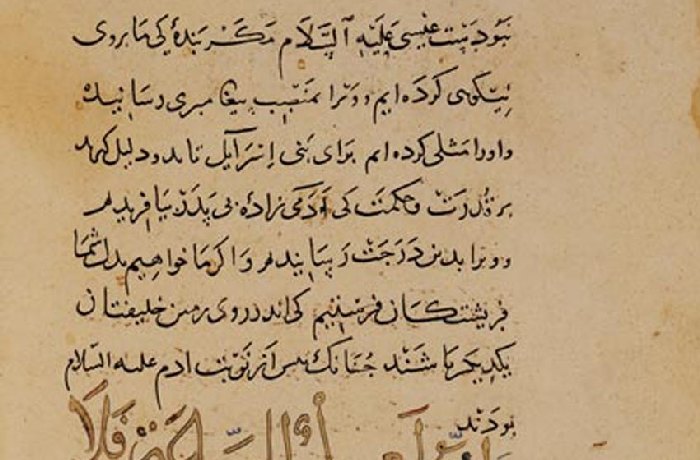 نبودست عیسی علیه السلام مکر بندهٔ کی ما بروی
نیکوی کرده ایم و ورا بمنصب پیغامبری رسانیده
و اورا مثلی کرده ایم برای بنی اسرآیل تا بدو دلیل کیرند
بر قدرت و حکمت کی آدمی زادهٔ بی پدر بیافریدیم
و ورا بدین درجت رسانیدیم و اکر ما خواهیم بدل شما
فریشتکان فرستیم کی اندر روی زمین خلیفتان
یکدیکر باشند چنانک پس از نوبت ادم علیه السلام
بودند